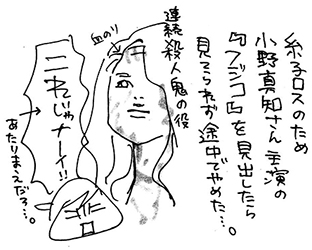 糸子ロスのため
小野真知さん主演の
『フジコ』を見出したら
見てられず途中でやめた…。
連続殺人鬼の役
血のり
これじゃナーイ!!
あたりまえだろ…。